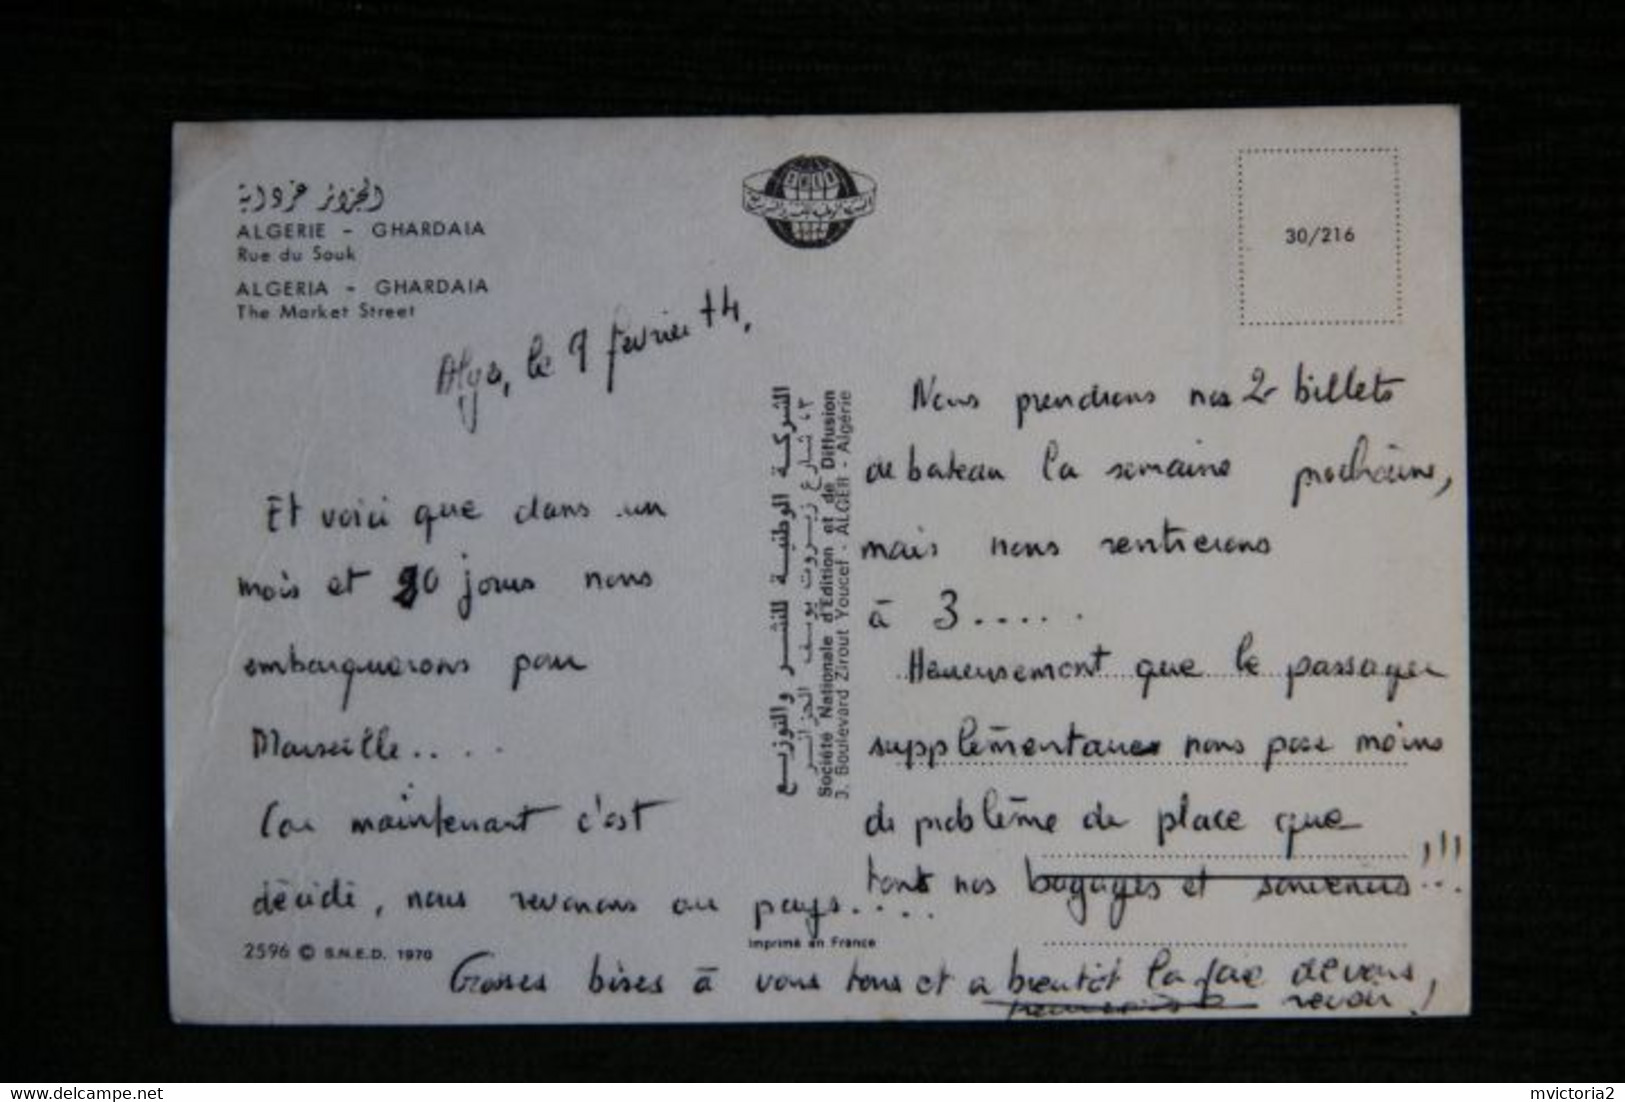 الجزائر غرداية
ALGERIE - GHARDAIA
Rue du Souk
ALGERIA - GHARDAIA
The Market Street
30/216
Alger, le 9 février 74,
Et voici que dans un
mois et 20 jours nous
embarquerons pour
Marseille....
Car maintenant c'est
décidé, nous revenons au pays.....
2596 © S.N.E.D. 1970
Imprimé en France
الشركة الوطنية للنشر والتوزيع
٣، شارع زيروت يوسف الجزائر
Société Nationale d'Edition et de Diffusion
3. Boulevard Zirout Youcef - ALGER - Algérie
Nous prendrons nos 2 billets
de bateau la semaine prochaine,
mais nous rentrerons
à 3.....
Heureusement que le passager
supplémentaire nous pose moins
de problème de place que
tous nos bagages et souvenirs !!!
Grosses bises à vous tous et a bientôt la joie de vous
revoir !
mvictoria2